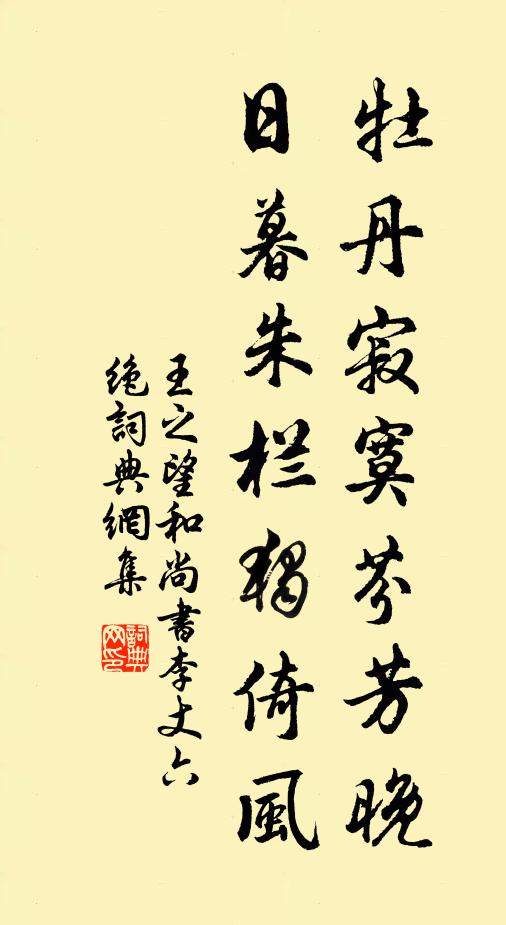 牡丹寂寞芬芳晚
日暮朱栏獨倚風
王之望和尚書李丈六
絶詞典網集
詞典
网印